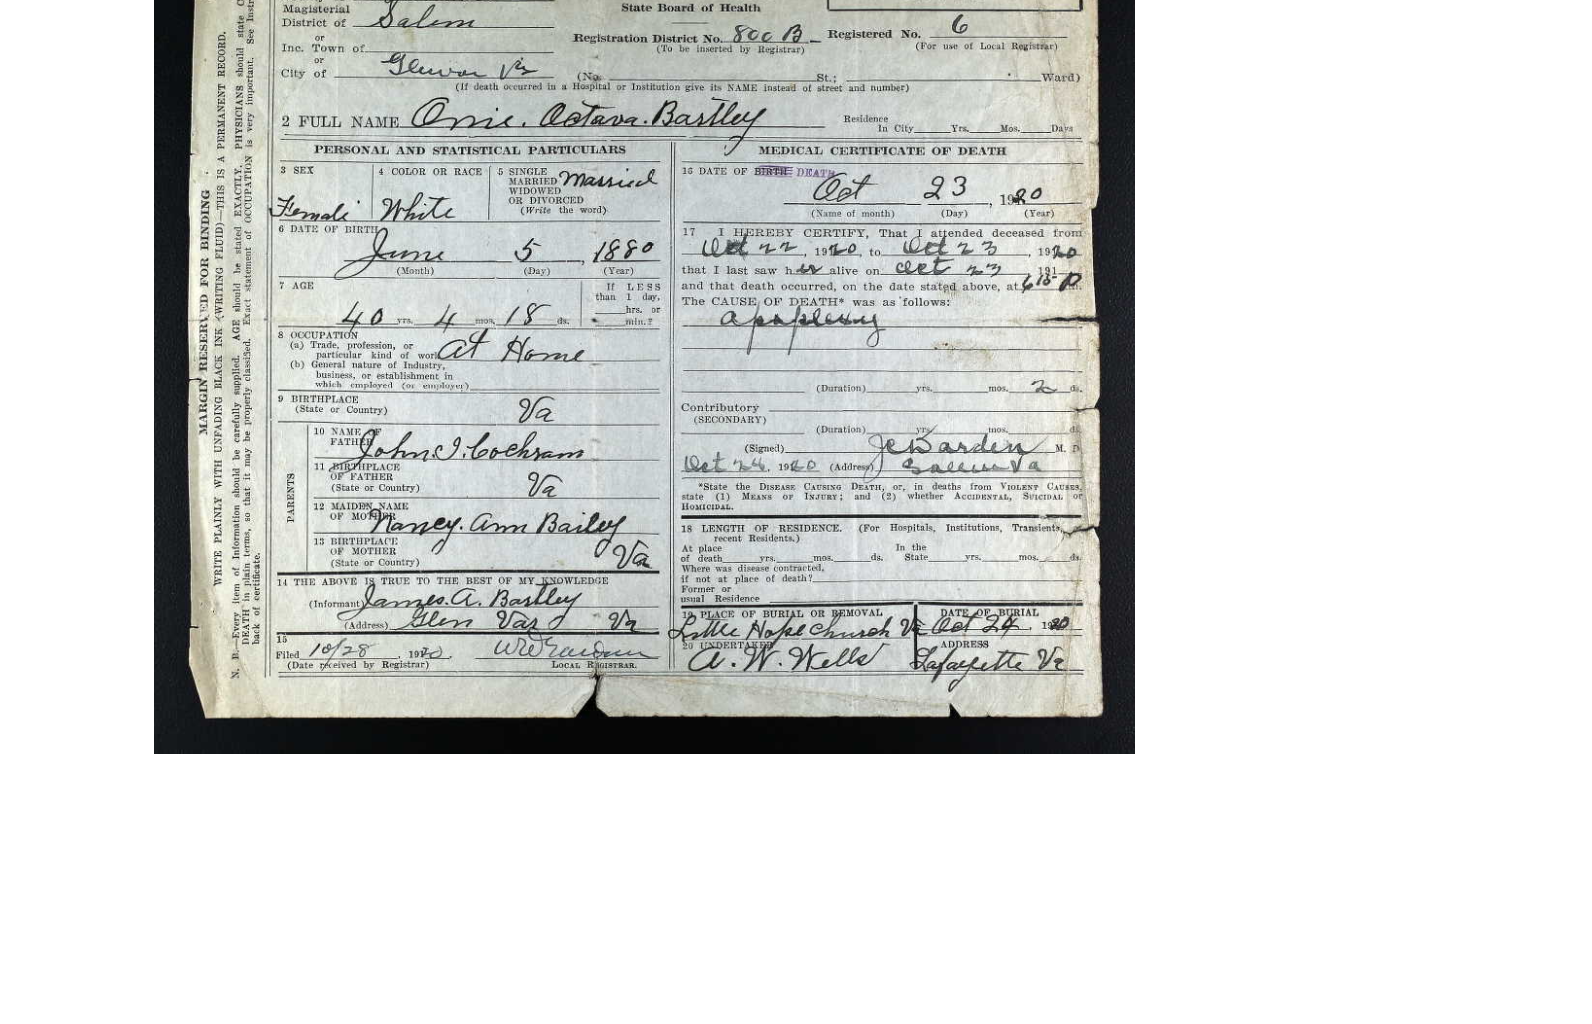 Magisterial
District of Salem
State Board of Health
or
Inc. Town of
Registration District No. 800 B Registered No. 6
(To be inserted by Registrar) (For use of Local Registrar)
or
City of Va (No. St.; Ward)
(If death occurred in a Hospital or Institution give its NAME instead of street and number)
2 FULL NAME Onie. Octava. Bartley
Residence
In City Yrs. Mos. Days
PERSONAL AND STATISTICAL PARTICULARS
3 SEX
Female
4 COLOR OR RACE
White
5 SINGLE
MARRIED
WIDOWED
OR DIVORCED
(Write the word)
Married
6 DATE OF BIRTH
June 5, 1880
(Month) (Day) (Year)
7 AGE
40 yrs. 4 mos. 18 ds.
If LESS
than 1 day,
hrs. or
min.?
8 OCCUPATION
(a) Trade, profession, or
particular kind of work At Home
(b) General nature of Industry,
business, or establishment in
which employed (or employer)
9 BIRTHPLACE
(State or Country) Va
PARENTS
10 NAME OF
FATHER John. I. Cochram
11 BIRTHPLACE
OF FATHER
(State or Country) Va
12 MAIDEN NAME
OF MOTHER Nancy. Ann Bailey
13 BIRTHPLACE
OF MOTHER
(State or Country) Va
14 THE ABOVE IS TRUE TO THE BEST OF MY KNOWLEDGE
(Informant) James. A. Bartley
(Address) Glen Var Va
15
Filed 10/28, 1920
(Date received by Registrar) LOCAL REGISTRAR.
MEDICAL CERTIFICATE OF DEATH
16 DATE OF BIRTH DEATH
Oct 23, 1920
(Name of month) (Day) (Year)
17 I HEREBY CERTIFY, That I attended deceased from
Oct 22, 1920, to Oct 23, 1920
that I last saw her alive on Oct 23, 191
and that death occurred, on the date stated above, at 6 15 P m.
The CAUSE OF DEATH* was as follows:
apoplexy
(Duration) yrs. mos. 2 ds.
Contributory
(SECONDARY)
(Duration) yrs. mos. ds.
(Signed) J C Darden M. D.
Oct 1920 (Address) Salem Va
*State the DISEASE CAUSING DEATH, or, in deaths from VIOLENT CAUSES,
state (1) MEANS OF INJURY; and (2) whether ACCIDENTAL, SUICIDAL or
HOMICIDAL.
18 LENGTH OF RESIDENCE. (For Hospitals, Institutions, Transients,
recent Residents.)
At place
of death yrs. mos. ds.
In the
State yrs. mos. ds.
Where was disease contracted,
if not at place of death?
Former or
usual Residence
19 PLACE OF BURIAL OR REMOVAL
Little Hope Church Va
DATE OF BURIAL
Oct 24, 1920
20 UNDERTAKER
A. W. Wells
ADDRESS
Lafayette Va
MARGIN RESERVED FOR BINDING
WRITE PLAINLY WITH UNFADING BLACK INK (WRITING FLUID)—THIS IS A PERMANENT RECORD.
N. B.—Every item of Information should be carefully supplied. AGE should be stated EXACTLY. PHYSICIANS should state
DEATH in plain terms, so that it may be properly classified. Exact statement of OCCUPATION is very important. See
back of certificate.